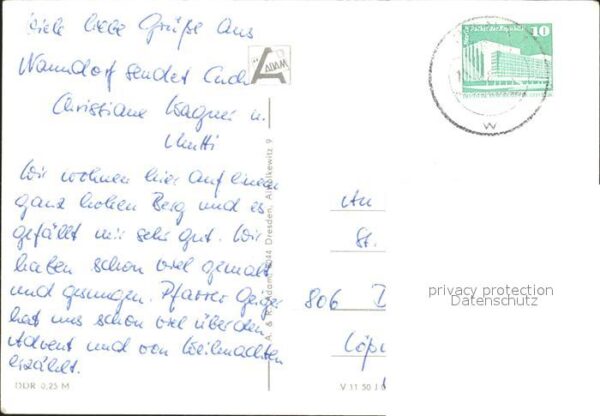 Viele liebe Grüße aus
Wanndorf sendet Euch
Christiane Wagner u.
Mutti
Wir wohnen hier auf einem
ganz hohen Berg und es
gefällt mir sehr gut. Wir
haben schon viel gemalt
und gesungen. Pfarrer Geiger
hat uns schon viel über den
Advent und von Weihnachten
erzählt.
DDR 0,25 M
ADAM
A. & R. Adam, 8044 Dresden, Altwilkewitz 9
V 11 50
10
An
St.
806 D
Löp
privacy protection
Datenschutz